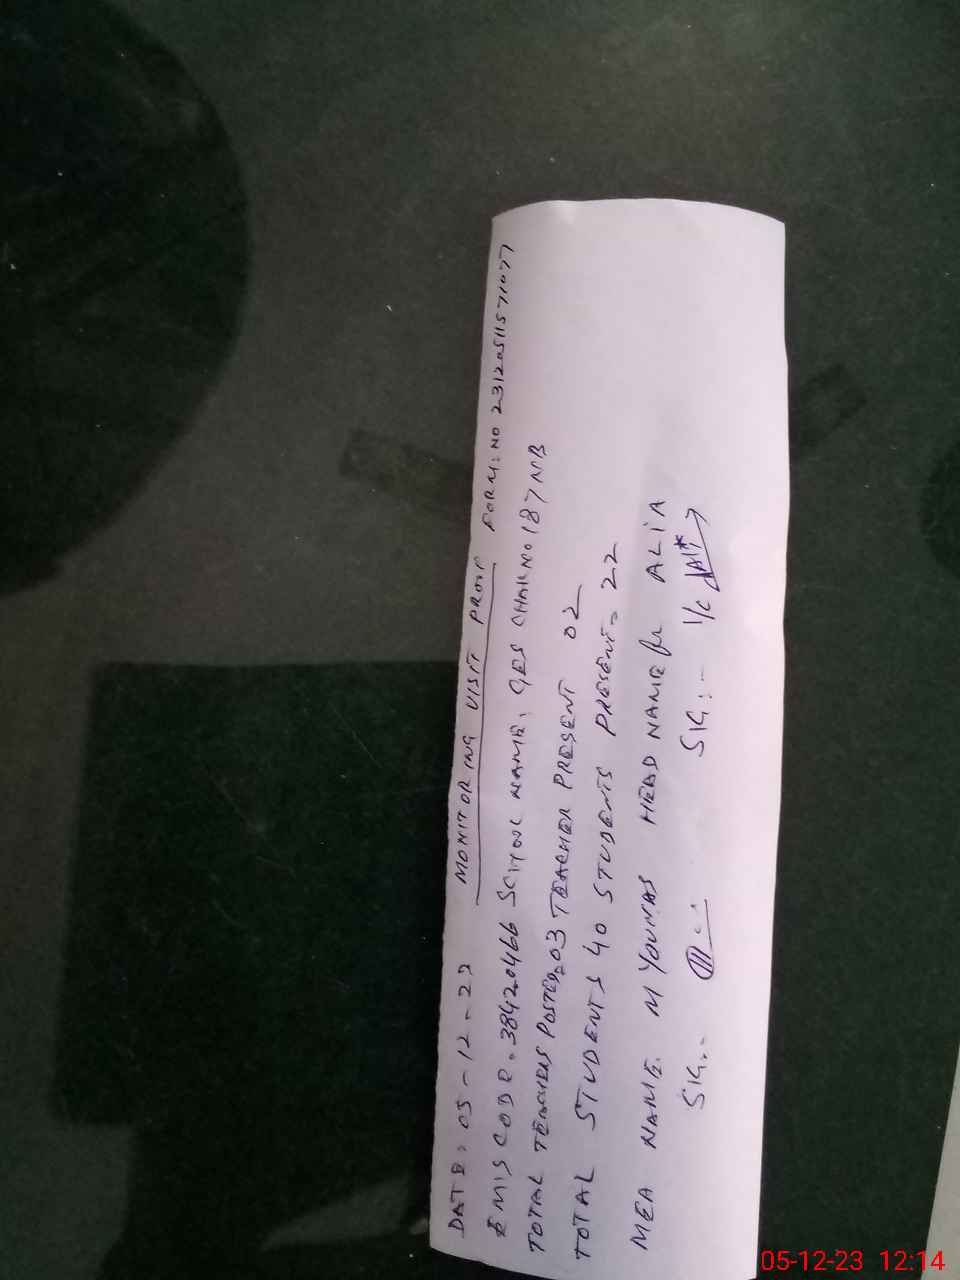 DATE: 05-12-23 MONITORING VISIT PROOF FORM: NO 23120511571077
EMIS CODE. 38420466 SCHOOL NAME. GES CHAK NO 187 NB
TOTAL TEACHERS POSTED. 03 TEACHER PRESENT 02
TOTAL STUDENTS 40 STUDENTS PRESENT. 22
MEA NAME. M YOUNAS HEAD NAME ALIA
SIG.. SIG:- I/C
05-12-23 12:14